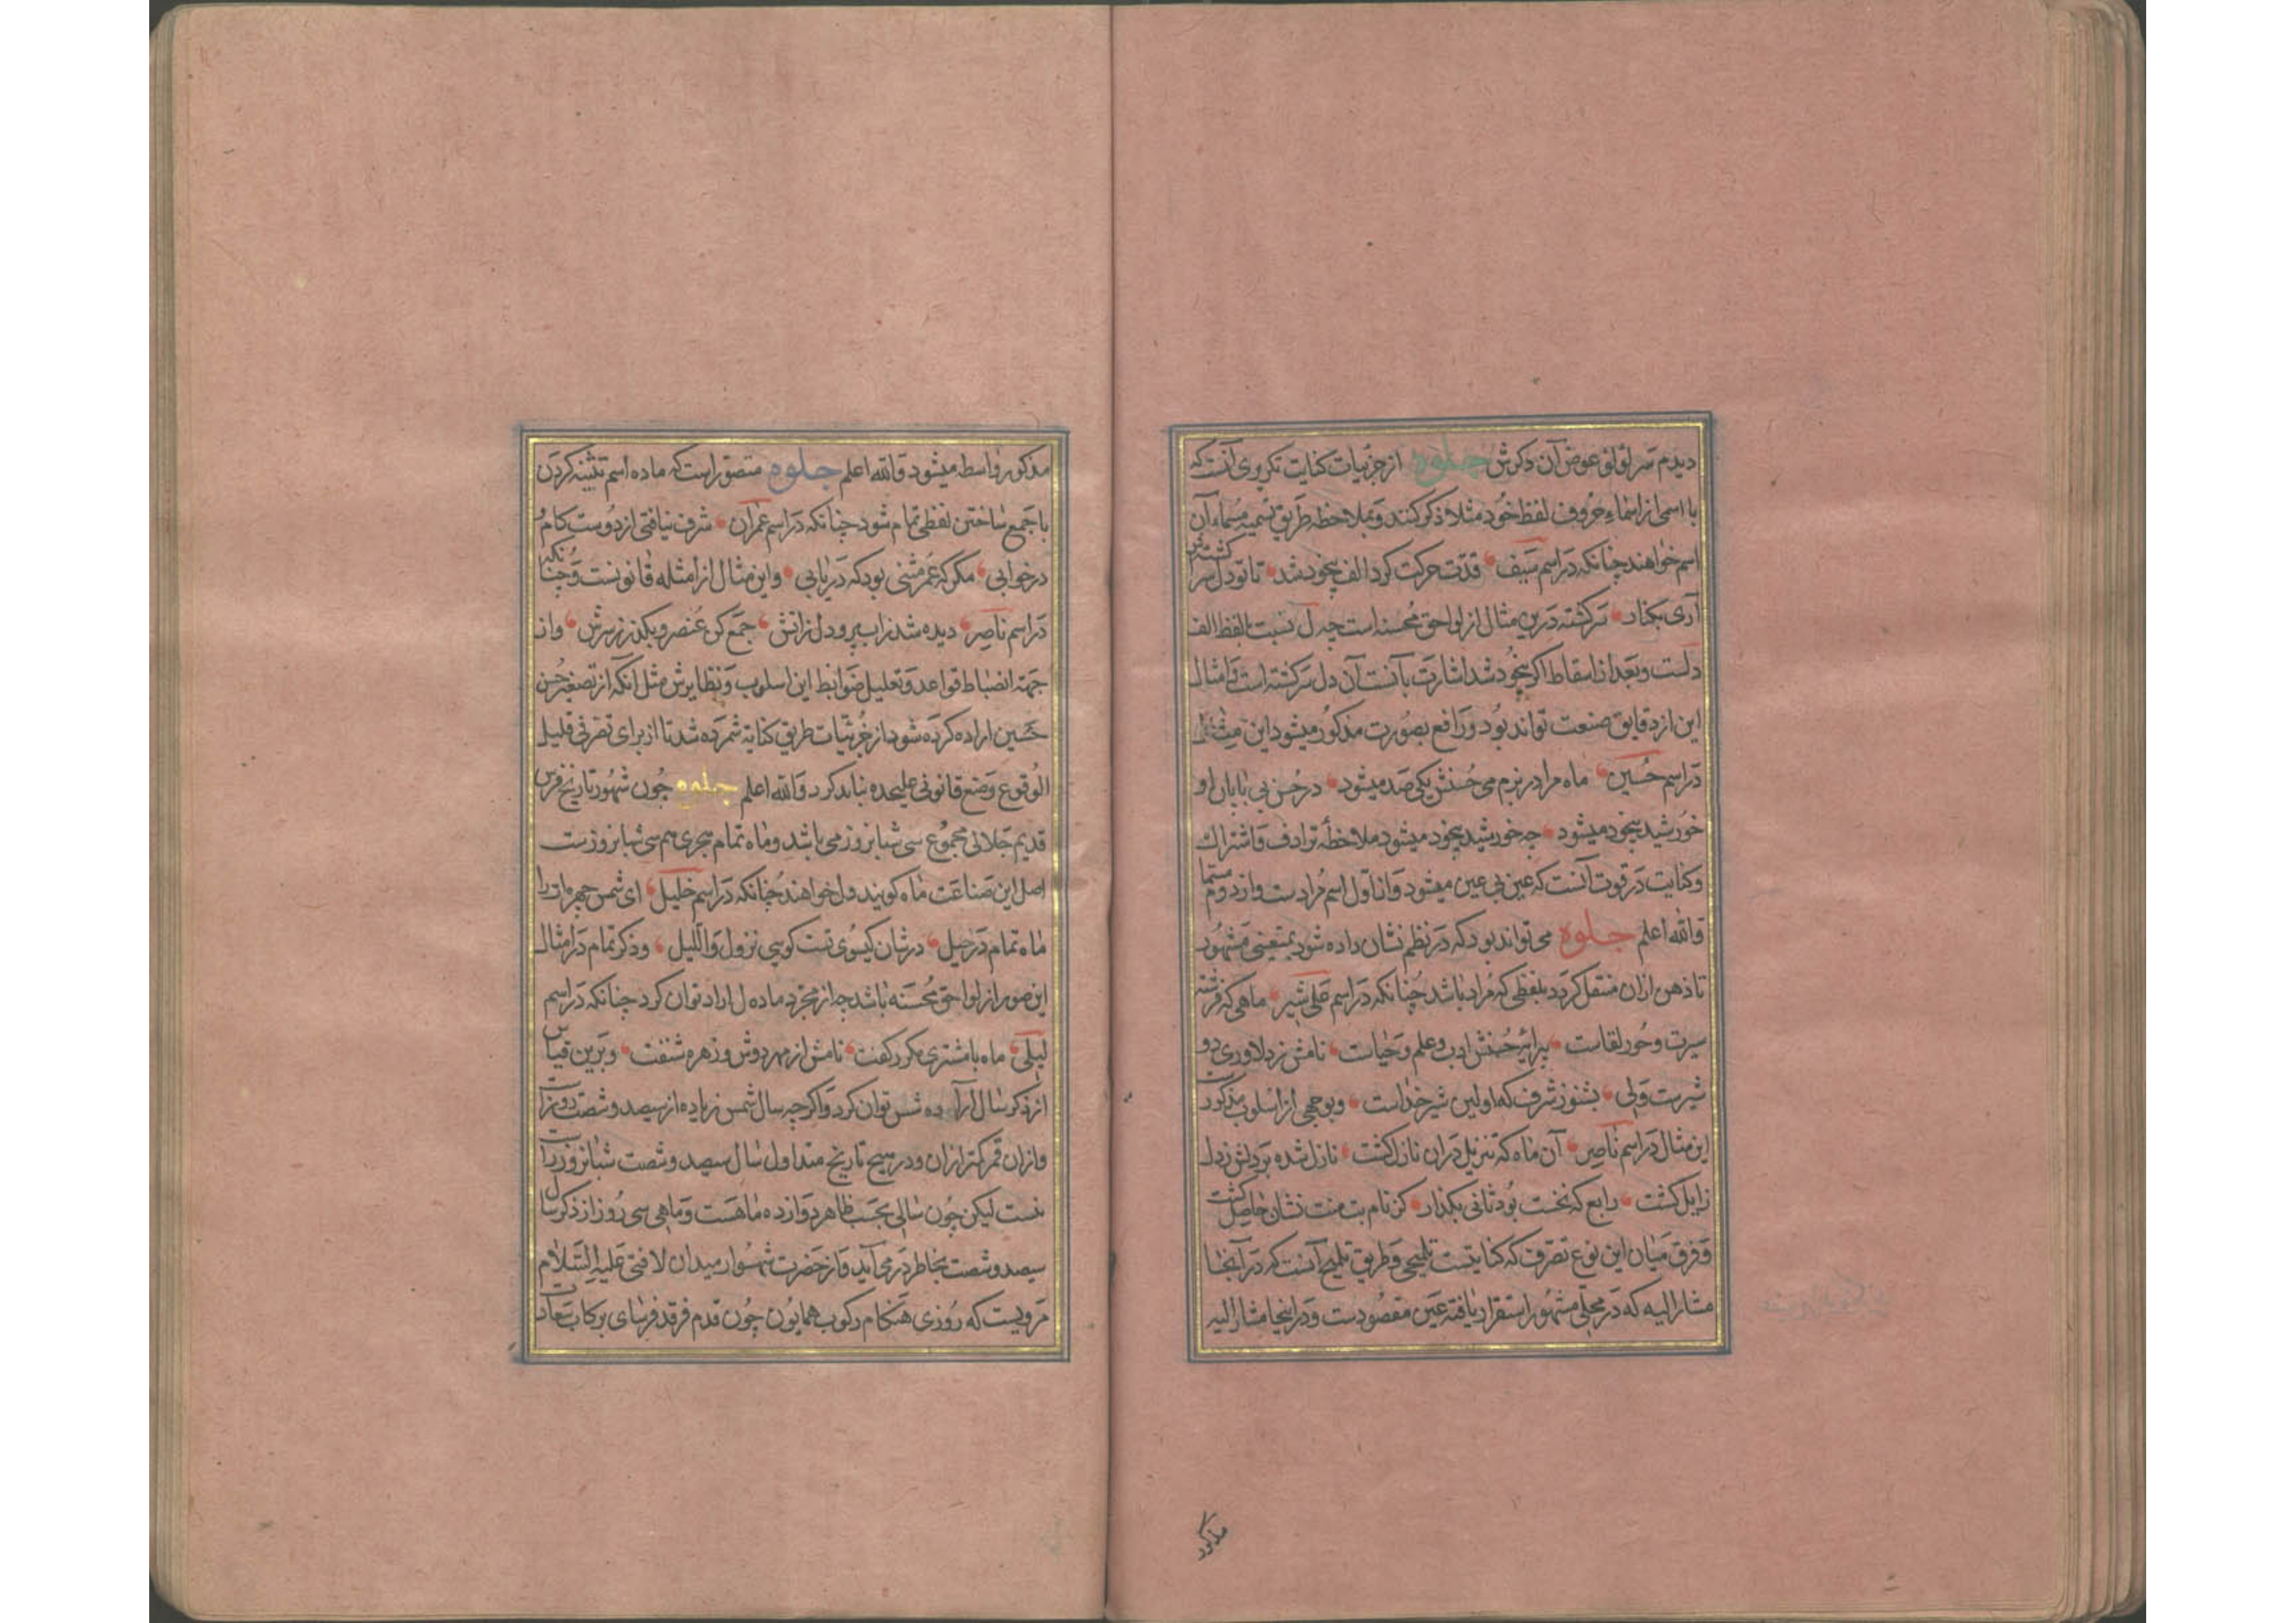 دیدم سر لؤلؤ عوض آن دکرش جلوه از جزئیات کنایت تکریری آنست که
با اسمی از اسماء حروف لفظ خود مثلا ذکر کنند و بملاحظه طریق تسمیه مسماء آن
اسم خواهند چنانکه در اسم سیف قدت حرکت کرد الف بیخود شد تا تو دل سر کشته‌اش
آری بکنار سرکشته درین مثال از لواحق محسنه است چه ل نسبت بلفظ الف
دلست و بعد از اسقاط اکر بیخود شد اشارت بآنست آن دل سرکشته است و امثال
این از دقایق صنعت تواند بود و رافع بصورت مذکور میشود این
در اسم حسین ماه مرا در بزم می حسنش یکی صد میشود در حسن بی پایان او
خورشید بیخود میشود چه خورشید بیخود میشود ملاحظه ترادف و اشتراک
و کنایت در قوت آنست که عین بی عین میشود و از اول اسم مرادست و از دوم مسما
والله اعلم جلوه می تواند بود که در نظم نشان داده شود بمعنی مشهور
تا ذهن ازان منتقل کردد بلفظی که مراد باشد چنانکه در اسم علی شیر ماهی که فرشته
سیرت و حور لقاست پیرایۀ حسنش ادب و علم و حیات نامش ز دلاوری دو
شیرست ولی بشنو ز شرف که اولین شیر خداست و بوجهی از اسلوب مذکورست
این مثال در اسم ناصر آن ماه که تنزیل دران نازل کشت نازل شده بر دلش ز دل
زایل کشت رابع که نخست بود ثانی بکذار کز نام بت منت نشان حاصل کشت
و فرق میان این نوع تصرف که کنایتست تلمیحی و طریق تلمیح آنست که در آنجا
مشار الیه که در محلی مشهور استقرار یافته عین مقصودست و در اینجا مشار الیه
مذکور
مذکور واسطه میشود والله اعلم جلوه متصور است که ماده اسم تثنیه کردن
با جمع ساختن لفظی تمام شود چنانکه در اسم عمران شرف نیافتی از دوست کام
در خوابی مکر که عمر مثنی بود که دریابی و این مثال از امثله قانونست و چنانکه
در اسم ناصر دیده شد ز آب پر و دل ز آتش جمع کن عنصر و بکذر ز سرش و از
جهة انضباط قواعد و تعلیل ضوابط این اسلوب و نظایرش مثل آنکه از تصغیر حسن
حسین اراده کرده شود از جزئیات طریق کنایة شمرده شد تا از برای تصرفی قلیل
الوقوع وضع قانونی علیحده نباید کرد والله اعلم جلوه چون شهور تاریخ فرس
قدیم جلالی مجموع سی شبانروز می باشد و ماه تمام هجری هم سی شبانروزست
اهل این صناعت ماه کویند و ل خواهند چنانکه در اسم خلیل ای شمس چهره‌ات را
ماه تمام در خیل در شان کیسوی تست کویی نزول واللیل و ذکر تمام در امثال
این صور از لواحق محسنه باشد چه از مجرد ماده ل اراد توان کرد چنانکه در اسم
لیلی ماه با مشتری مکرر کفت نامش از مهر دوش و زهره شنفت و برین قیاس
از ذکر سال ارآده شس توان کرد و اکرچه سال شمس زیاده از سیصد و شصت روزست
و ازان قمر کمتر ازان و در هیچ تاریخ متداول سال سیصد و شصت شبانروز راست
نیست لیکن چون سالی بحسب ظاهر دوازده ماهست و ماهی سی روز از ذکر سال
سیصد و شصت بخاطر در می آید و از حضرت شهسوار میدان لا فتی علیه السلام
مرویست که روزی هنکام رکوب همایون چون قدم فرقد فرسای برکاب سعادت